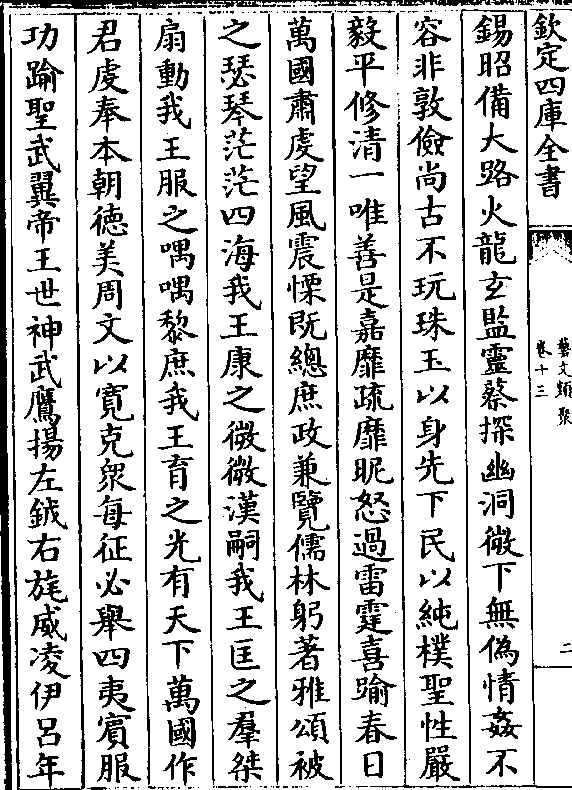 欽定四庫全書
藝文類聚
卷十三
二
錫昭備大路火龍玄監靈蔡探幽洞微下無偽情姦不
容非敦儉尚古不玩珠玉以身先下民以純樸聖性嚴
毅平修清一唯善是嘉靡疏靡昵怒過雷霆喜踰春日
萬國肅虔望風震慄既總庶政兼覽儒林躬著雅頌被
之瑟琴茫茫四海我王康之微微漢嗣我王匡之羣桀
扇動我王服之喁喁黎庶我王育之光有天下萬國作
君虔奉本朝徳美周文以寛克衆每征必舉四夷賓服
功踰聖武翼帝王世神武鷹揚左鉞右旄威凌伊吕年